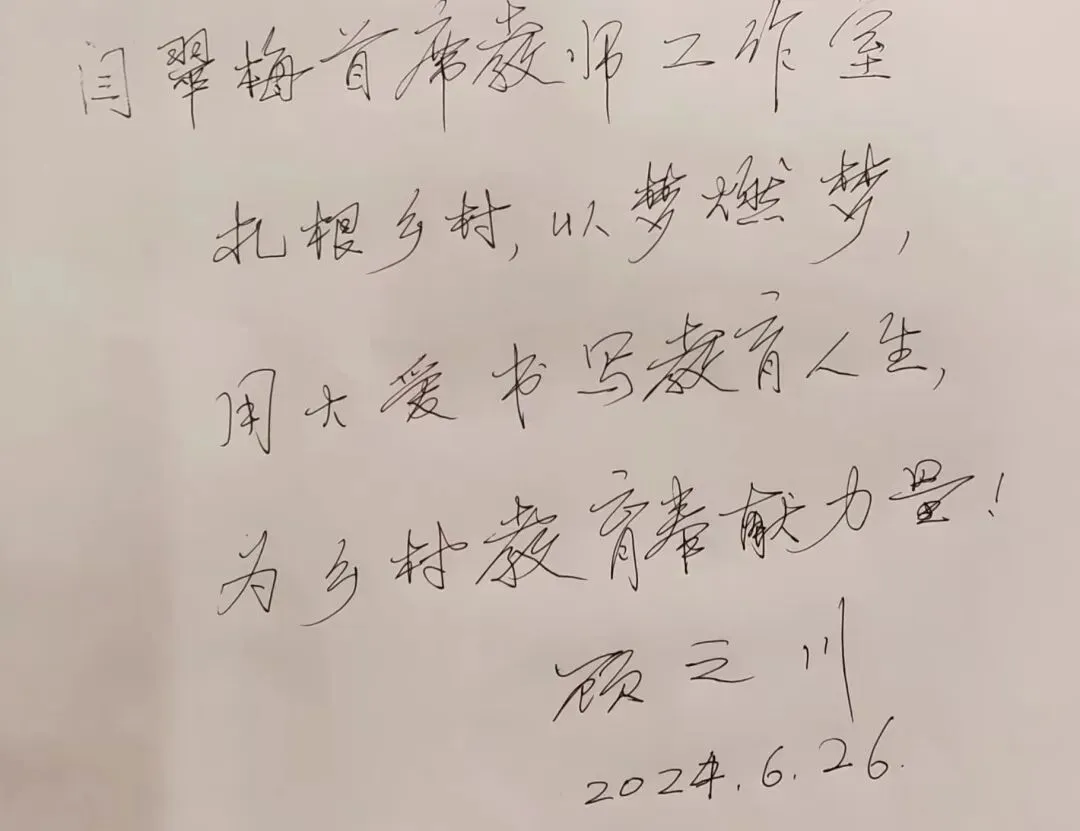 闫翠梅首席教师工作室
扎根乡村,以梦燃梦,
用大爱书写教育人生,
为乡村教育奉献力量!
顾之川
2024.6.26.